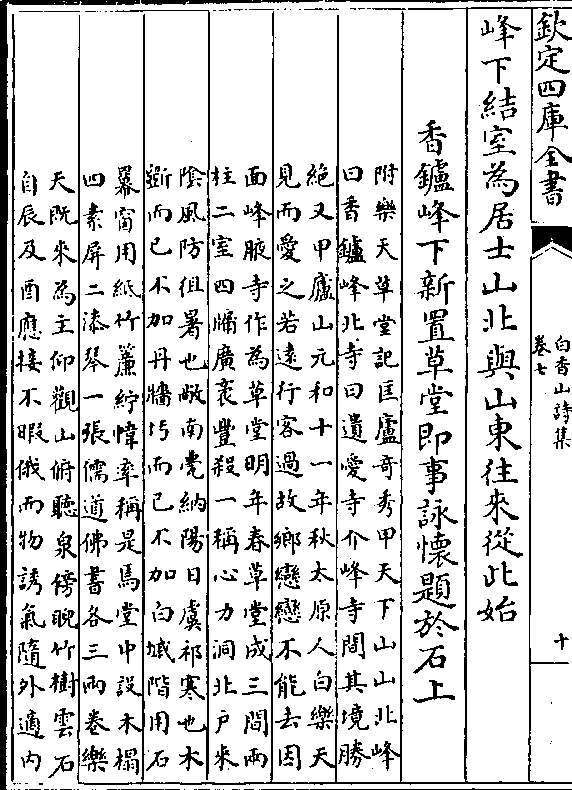 欽定四庫全書
白香山詩集
卷七
十
峰下結室為居士山北與山東往來從此始
香鑪峰下新置草堂即事詠懷題於石上
附樂天草堂記匡廬奇秀甲天下山山北峰
曰香鑪峰北寺曰遺愛寺介峰寺間其境勝
絶又甲廬山元和十一年秋太原人白樂天
見而愛之若遠行客過故鄉戀戀不能去因
面峰腋寺作為草堂明年春草堂成三間兩
柱二室四牖廣袤豐殺一稱心力洞北戶來
陰風防徂暑也敞南甍納陽日虞祁寒也木
斵而已不加丹牆圬而已不加白墄階用石
冪窗用紙竹簾紵幃率稱是焉堂中設木榻
四素屏二漆琴一張儒道佛書各三兩卷樂
天既來為主仰觀山俯聽泉傍睨竹樹雲石
自辰及酉應接不暇俄而物誘氣隨外適内